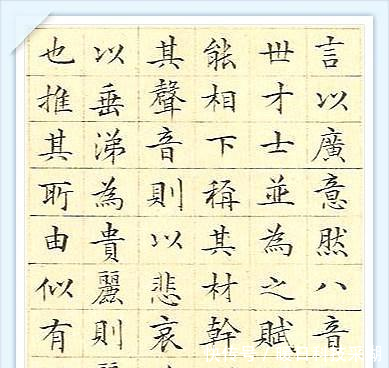 言以廣意然八音
世才士並為之賦
能相下稱其材幹
其聲音則以悲哀
以垂涕為貴麗則
也推其所由似有